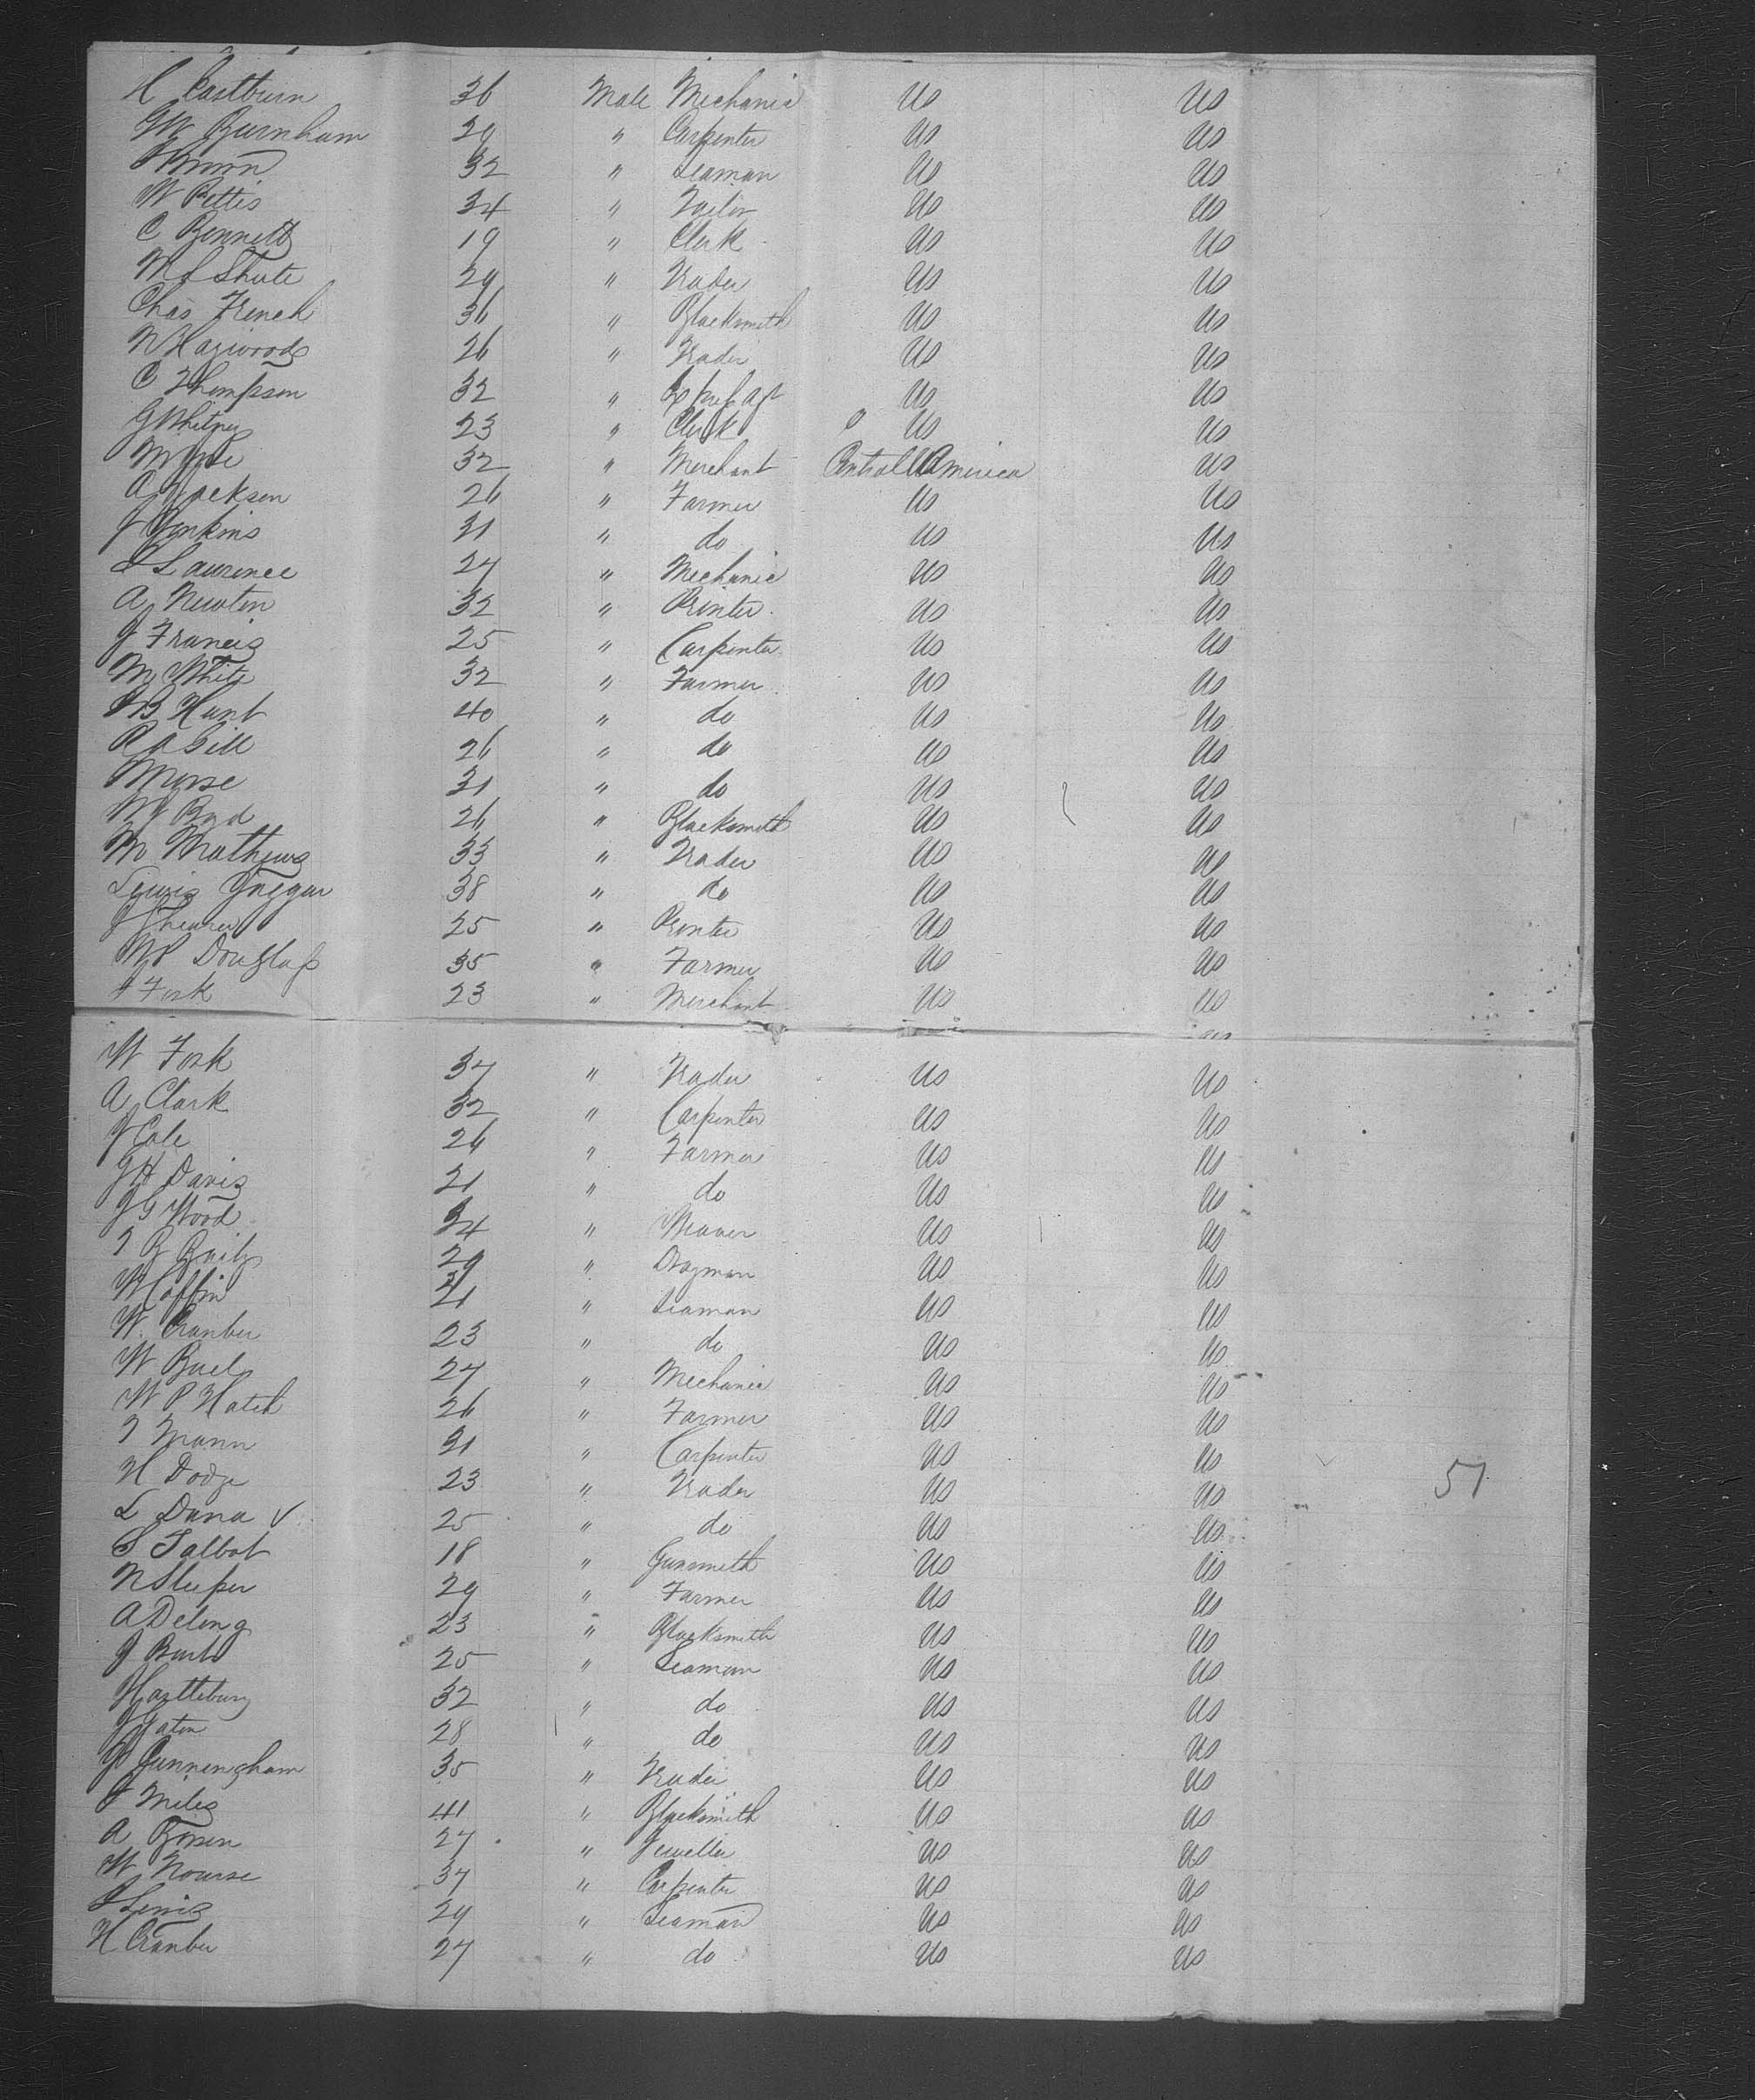 H Eastburn 36 Male Mechanic US US
GW Burnham 29 " Carpenter US US
Brown 32 " Seaman US US
W Bettis 34 " Tailor US US
C Bennett 19 " Clerk US US
W S Shute 29 " Trader US US
Chas French 36 " Blacksmith US US
W Haywood 26 " Trader US US
C Thompson 32 " Agt US US
G Whitney 23 " Clerk US US
32 " Merchant Central America US
A Jackson 26 " Farmer US US
J Jenkins 31 " do US US
S Laurence 27 " Mechanic US US
A Newton 32 " Printer US US
J Francis 25 " Carpenter US US
M White 32 " Farmer US US
B Hunt 40 " do US US
26 " do US US
Morse 31 " do US US
26 " Blacksmith US US
Mathews 33 " Trader US US
Lewis 38 " do US US
25 " Printer US US
Douglass 35 " Farmer US US
Fosk 23 " Merchant US US
W Fosk 37 " Trader US US
A Clark 32 " Carpenter US US
J Cole 26 " Farmer US US
J H Davis 21 " do US US
J G Wood 34 " Weaver US US
T B Baily 29 " Drayman US US
Coffin 21 " Seaman US US
W. Cranber 23 " do US US
W Buel 27 " Mechanic US US
W P Hatch 26 " Farmer US US
T Mann 31 " Carpenter US US
H Dodge 23 " Trader US US 57
L Dana v 25 " do US US
S Talbot 18 " Gunsmith US US
N Sleeper 29 " Farmer US US
A Delong 23 " Blacksmith US US
J Burt 25 " Seaman US US
32 " do US US
28 " do US US
Cunningham 35 " Trader US US
Miles 41 " Blacksmith US US
A 27 " Jeweller US US
W Nourse 37 " Carpenter US US
Lewis 29 " Seaman US US
H Cranber 27 " do US US